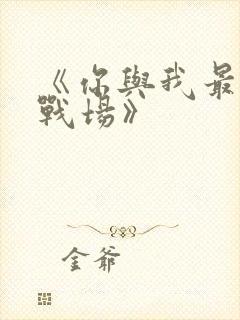 《你與我最
戰場》
金爺